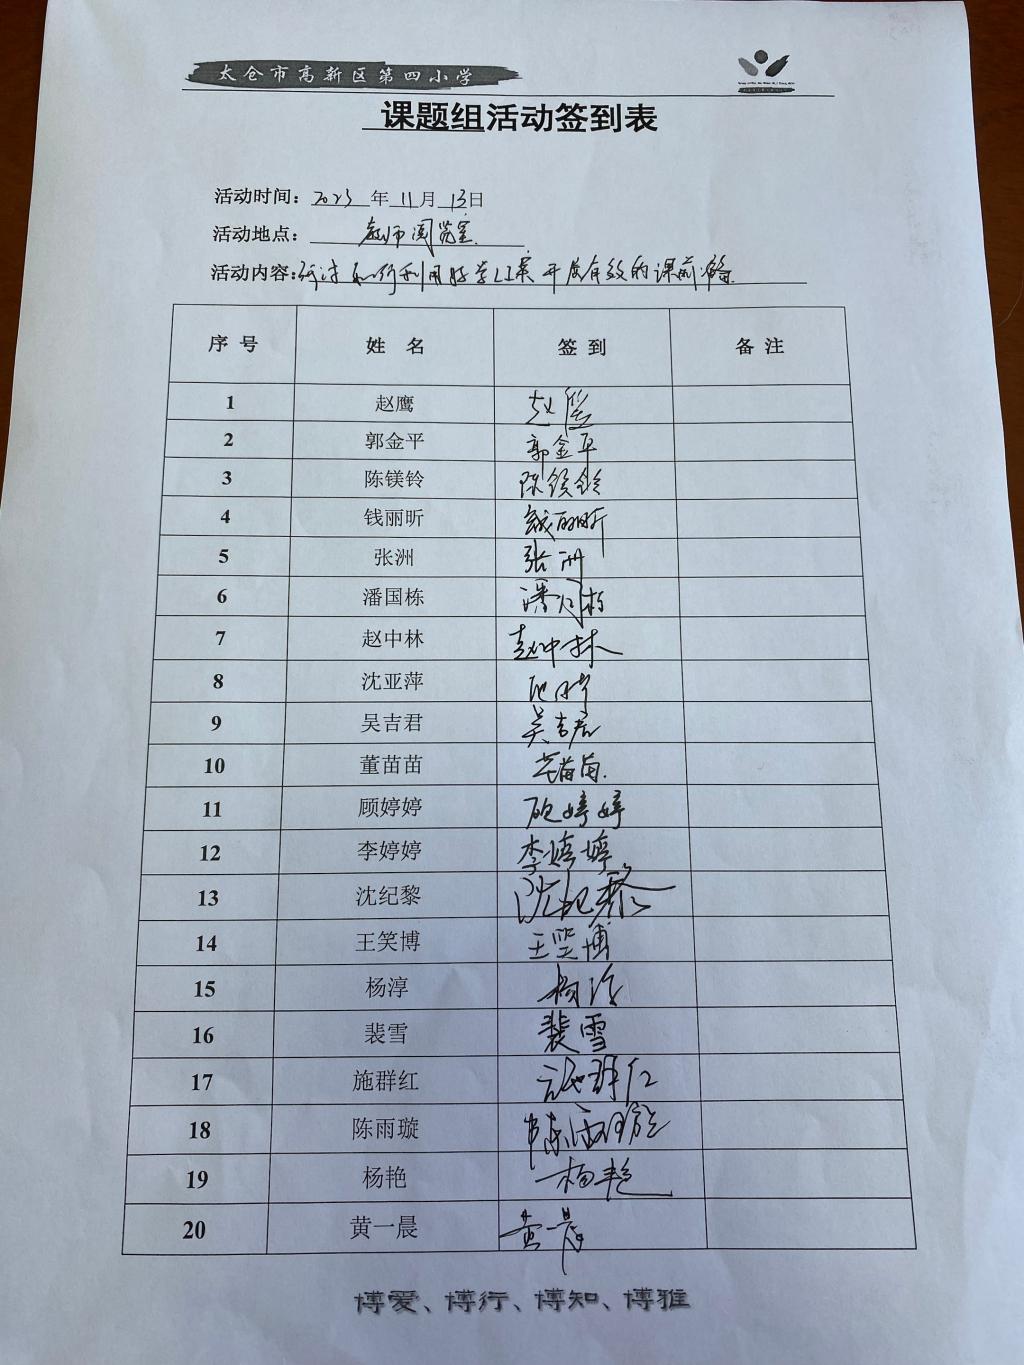 太仓市高新区第四小学
课题组活动签到表
活动时间：2023年11月13日
活动地点：教师阅览室
活动内容：研讨如何利用好学习单开展有效的课前
序号 姓名 签到 备注
1 赵鹰 赵鹰
2 郭金平 郭金平
3 陈镁铃 陈镁铃
4 钱丽昕 钱丽昕
5 张洲 张洲
6 潘国栋 潘国栋
7 赵中林 赵中林
8 沈亚萍
9 吴吉君 吴吉君
10 董苗苗 董苗苗
11 顾婷婷 顾婷婷
12 李婷婷 李婷婷
13 沈纪黎 沈纪黎
14 王笑博 王笑博
15 杨淳 杨淳
16 裴雪 裴雪
17 施群红 施群红
18 陈雨璇 陈雨璇
19 杨艳 杨艳
20 黄一晨 黄一晨
博爱、博行、博知、博雅